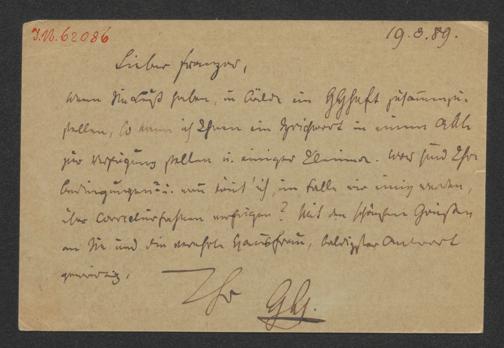 I.N. 62086
19.8.89.
Lieber Franzos,
wenn Sie Lust haben, in Bälde ein GGheft zusammenzu-
stellen, so kann ich Ihnen ein in einem Akt
zur Verfügung stellen u. einiges Kleinere. Was sind Ihre
Bedingungen? u. ich, im Falle wir einig werden,
über Correcturfahnen verfügen? Mit den schönsten Grüßen
an Sie und die verehrte Hausfrau, baldigster Antwort
gewärtig,
Ihr